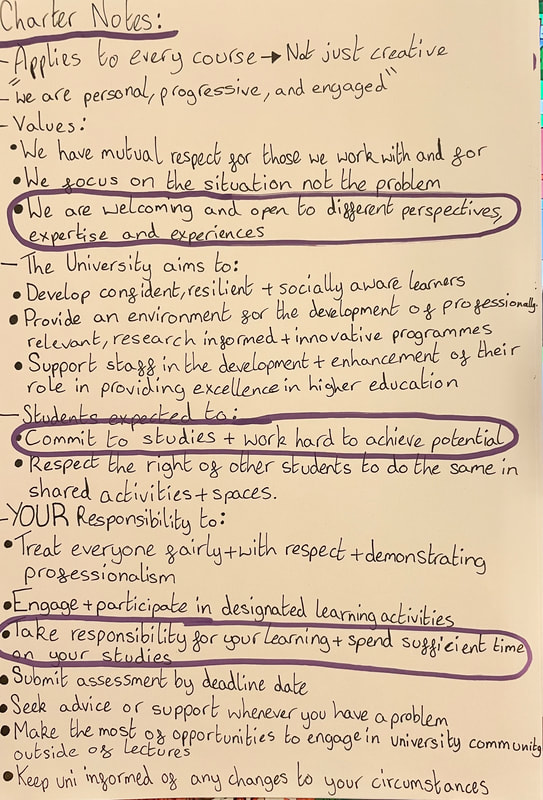 Charter Notes:
- Applies to every course → Not just creative
- "We are personal, progressive, and engaged"
- Values:
• We have mutual respect for those we work with and for
• We focus on the situation not the problem
• We are welcoming and open to different perspectives,
expertise and experiences
- The University aims to:
• Develop confident, resilient + socially aware learners
• Provide an environment for the development of professionally
relevant, research informed + innovative programmes
• Support staff in the development + enhancement of their
role in providing excellence in higher education
- Students expected to:
• Commit to studies + work hard to achieve potential
• Respect the right of other students to do the same in
shared activities + spaces.
- YOUR Responsibility to:
• Treat everyone fairly + with respect + demonstrating
professionalism
• Engage + participate in designated learning activities
• Take responsibility for your learning + spend sufficient time
on your studies
• Submit assessment by deadline date
• Seek advice or support whenever you have a problem
• Make the most of opportunities to engage in university community
outside of lectures
• Keep uni informed of any changes to your circumstances